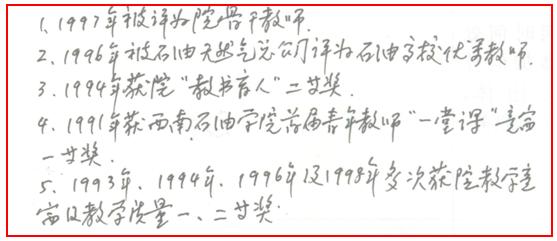 1、1997年被评为院骨干教师.
2、1996年被石油天然气总公司评为石油高校优秀教师.
3、1994年获院“教书育人”二等奖.
4、1991年获西南石油学院首届青年教师“一堂课”竞赛
一等奖.
5、1993年、1994年、1996年及1998年多次获院教学竞
赛及教学质量一、二等奖.